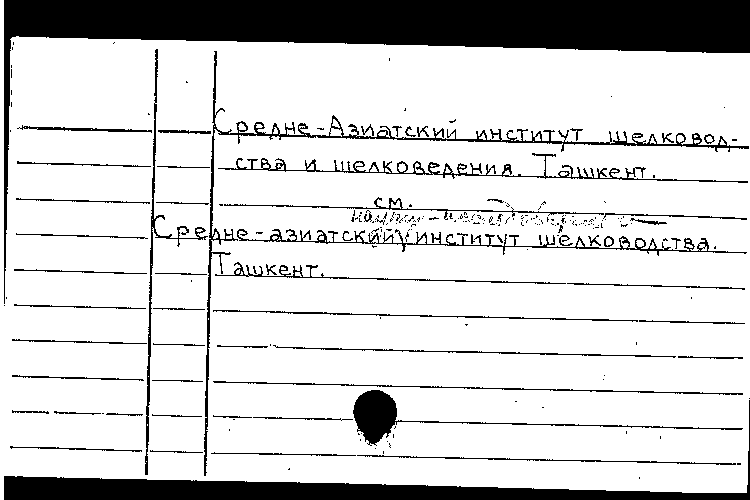 Средне-Азиатский институт шелковод-
ства и шелковедения. Ташкент.
см.
научно-исследоват.
Средне-азиатский институт шелководства.
Ташкент.